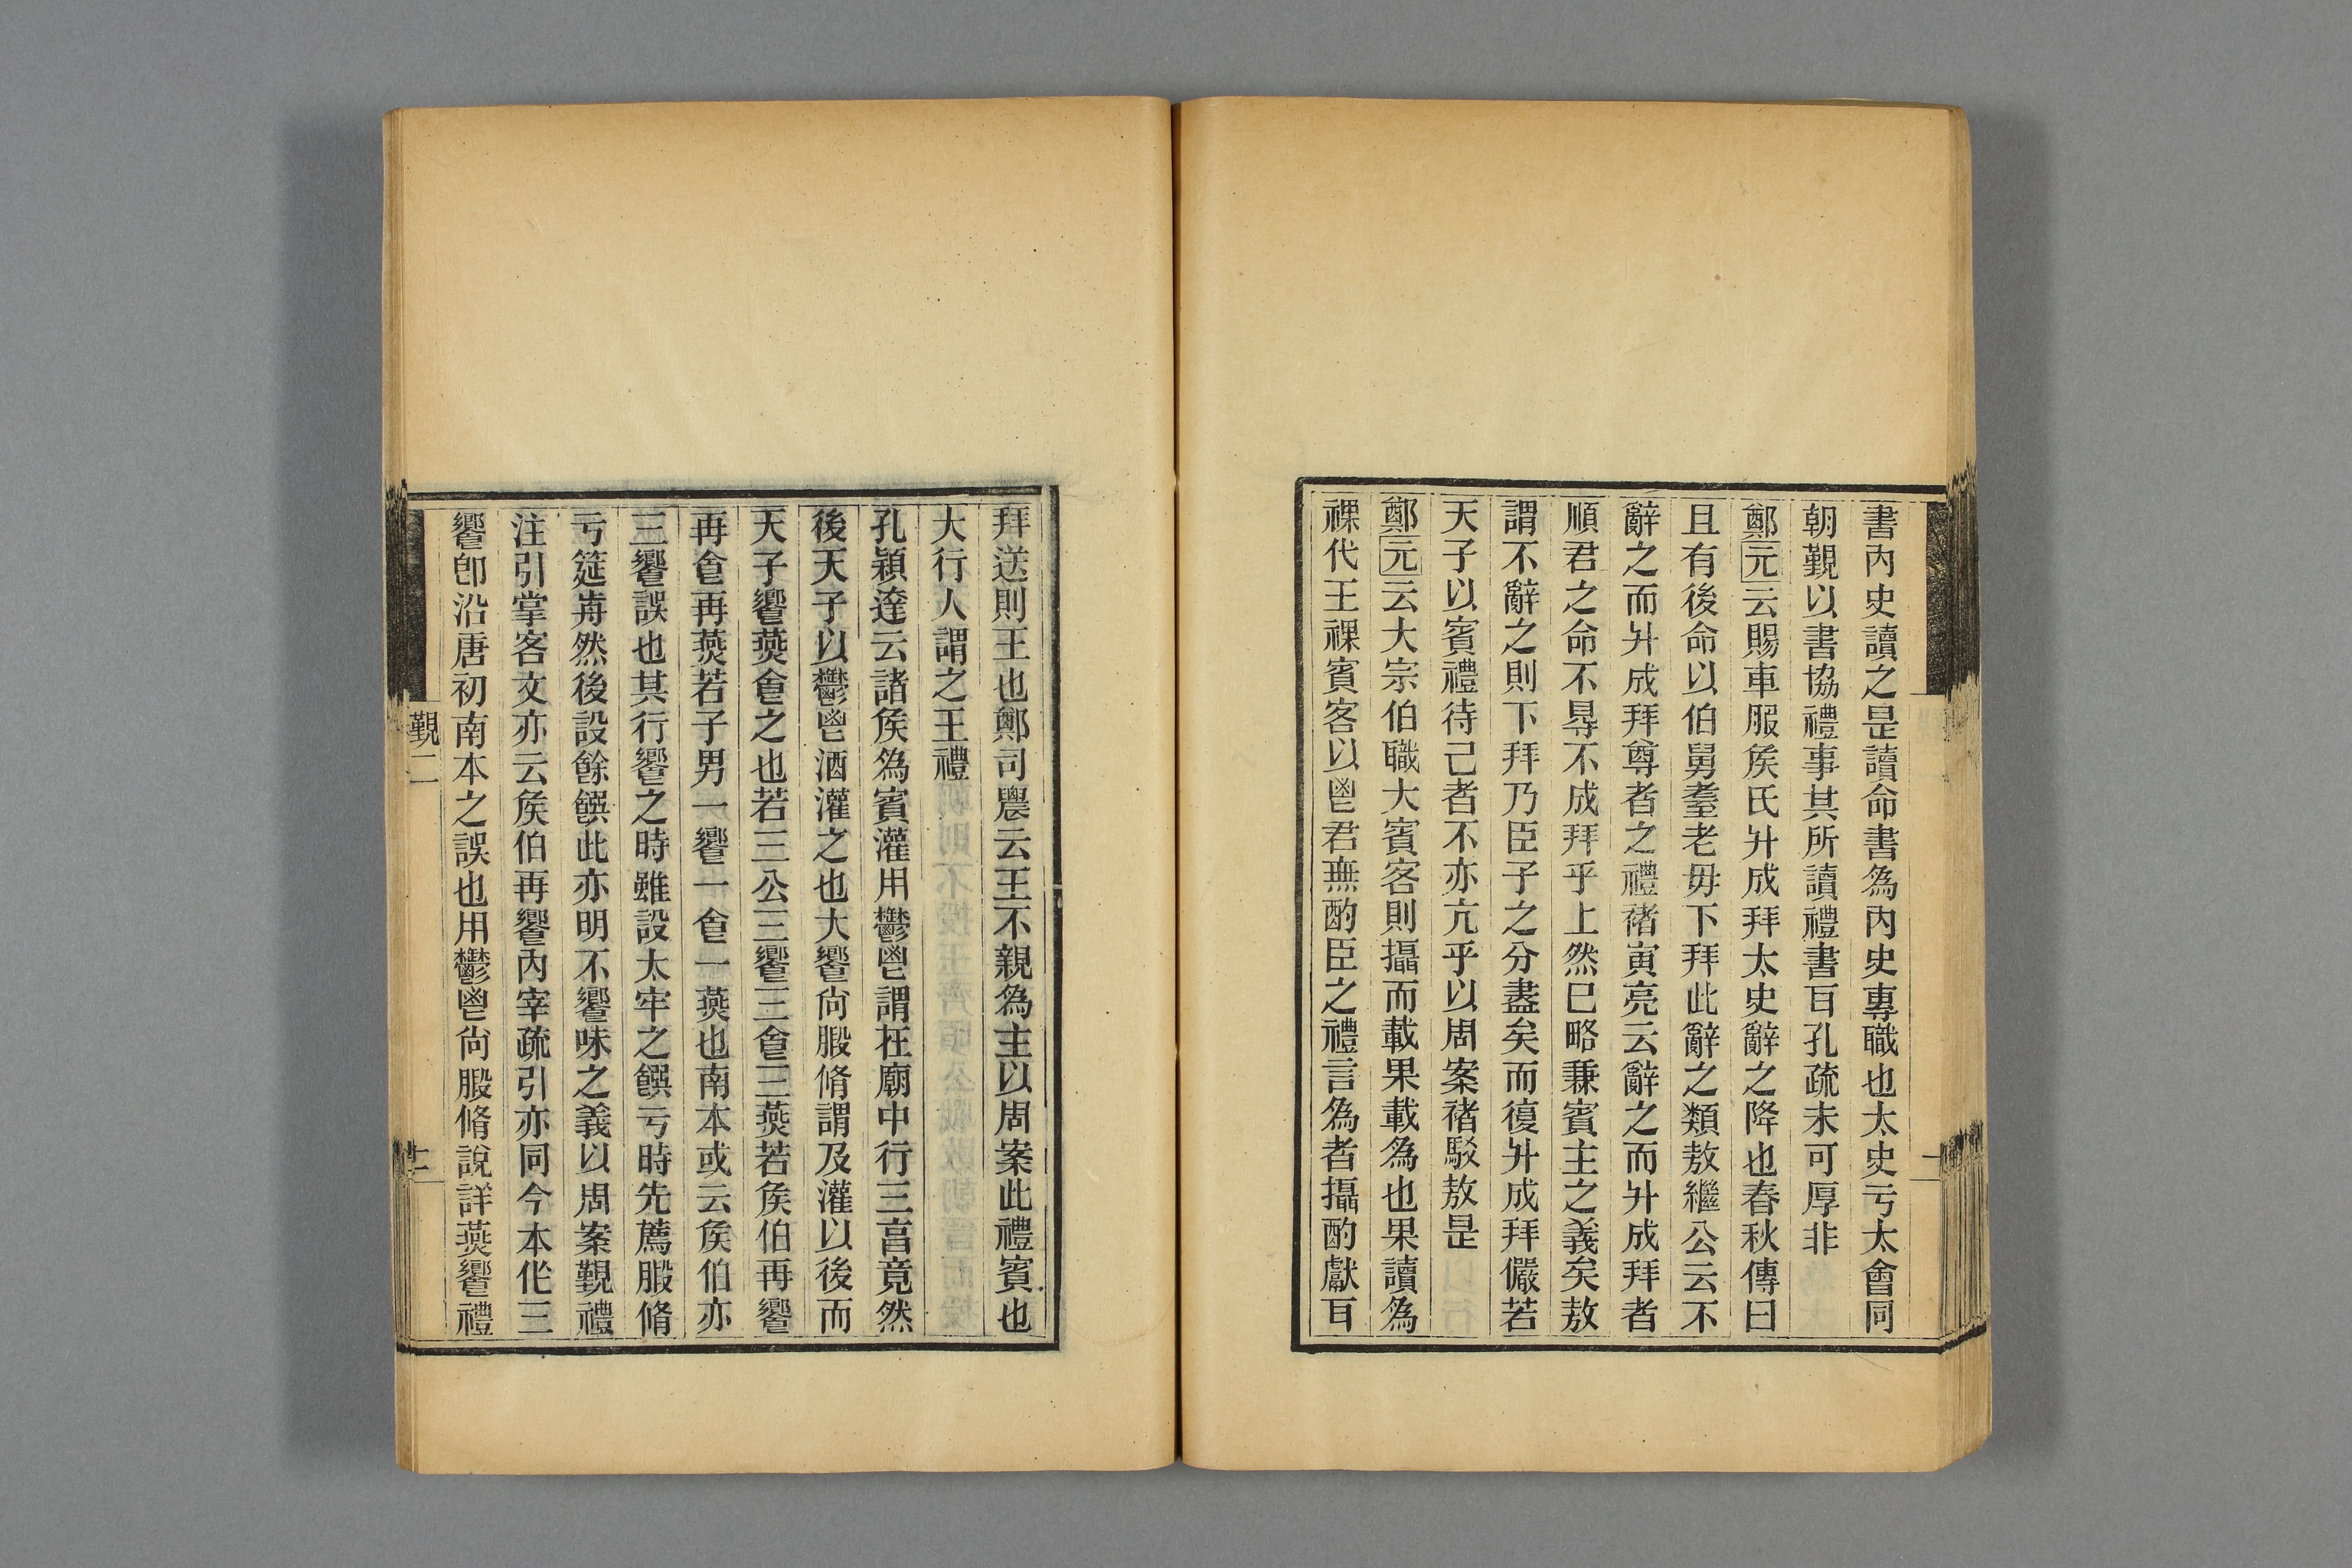 書內史讀之是讀命書為內史專職也太史亏太會同
朝覲以書協禮事其所讀禮書耳孔疏未可厚非
鄭元云賜車服矦氏升成拜太史辭之降也春秋傳曰
且有後命以伯舅耋老毋下拜此辭之類敖繼公云不
辭之而升成拜尊者之禮褚寅亮云辭之而升成拜者
順君之命不㝵不成拜乎上然巳略兼賓主之義矣敖
謂不辭之則下拜乃臣子之分盡矣而復升成拜儼若
天子以賓禮待己者不亦亢乎以周案褚駁敖是
鄭元云大宗伯職大賓客則攝而載果載為也果讀為
祼代王祼賓客以鬯君無酌臣之禮言為者攝酌獻耳
拜送則王也鄭司農云王不親為主以周案此禮賓也
大行人謂之王禮
孔穎達云諸矦為賓灌用鬱鬯謂在廟中行三亯竟然
後天子以鬱鬯酒灌之也大饗尚腶脩謂及灌以後而
天子饗燕食之也若三公三饗三食三燕若矦伯再饗
再食再燕若子男一饗一食一燕也南本或云矦伯亦
三饗誤也其行饗之時雖設太牢之饌亏時先薦腶脩
亏筵歬然後設餘饌此亦明不饗味之義以周案覲禮
注引掌客文亦云矦伯再饗內宰疏引亦同今本作三
饗卽沿唐初南本之誤也用鬱鬯尚腶脩說詳燕饗禮
覲二